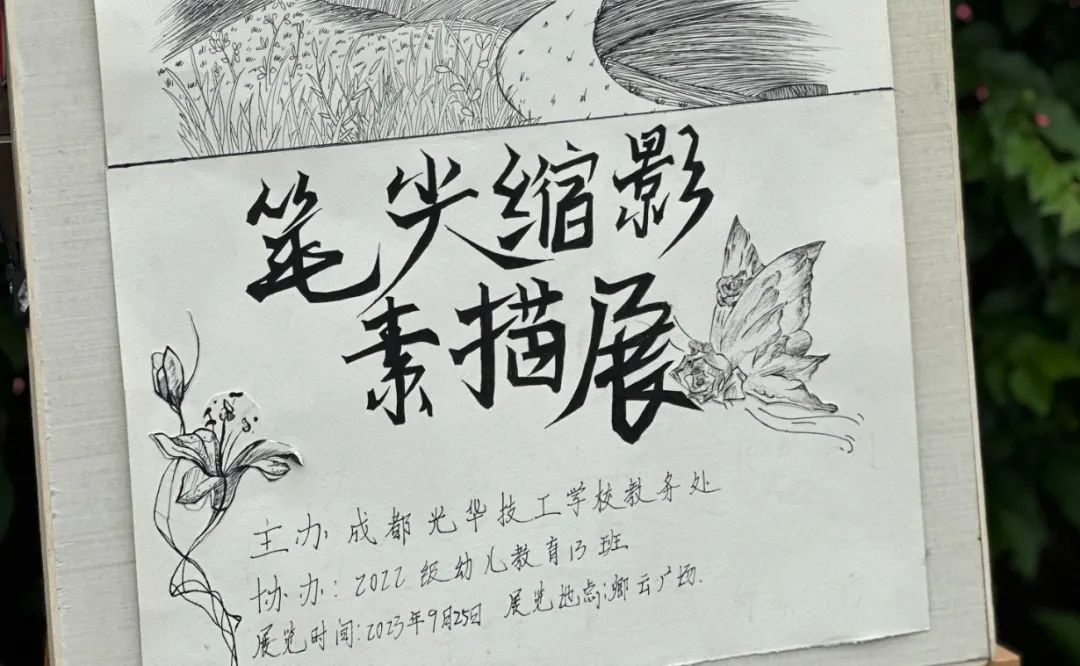 笔尖缩影
素描展
主办 成都光华技工学校教务处
协办：2022级幼儿教育13班
展览时间：2023年9月25日 展览地点：卿云广场.